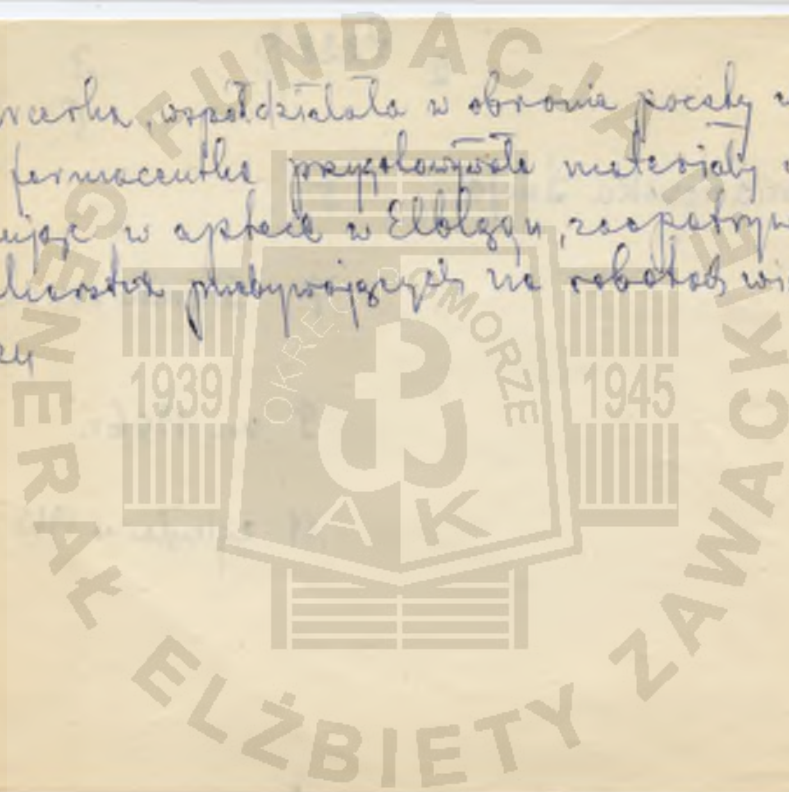 współdziałała w obronie poczty
farmaceutka przygotowywała materiały
w aptece w Elblągu,
przebywających na robotach
FUNDACJA GENERAŁ ELŻBIETY ZAWACKIEJ
OKRĘG POMORZE
1939 1945
AK